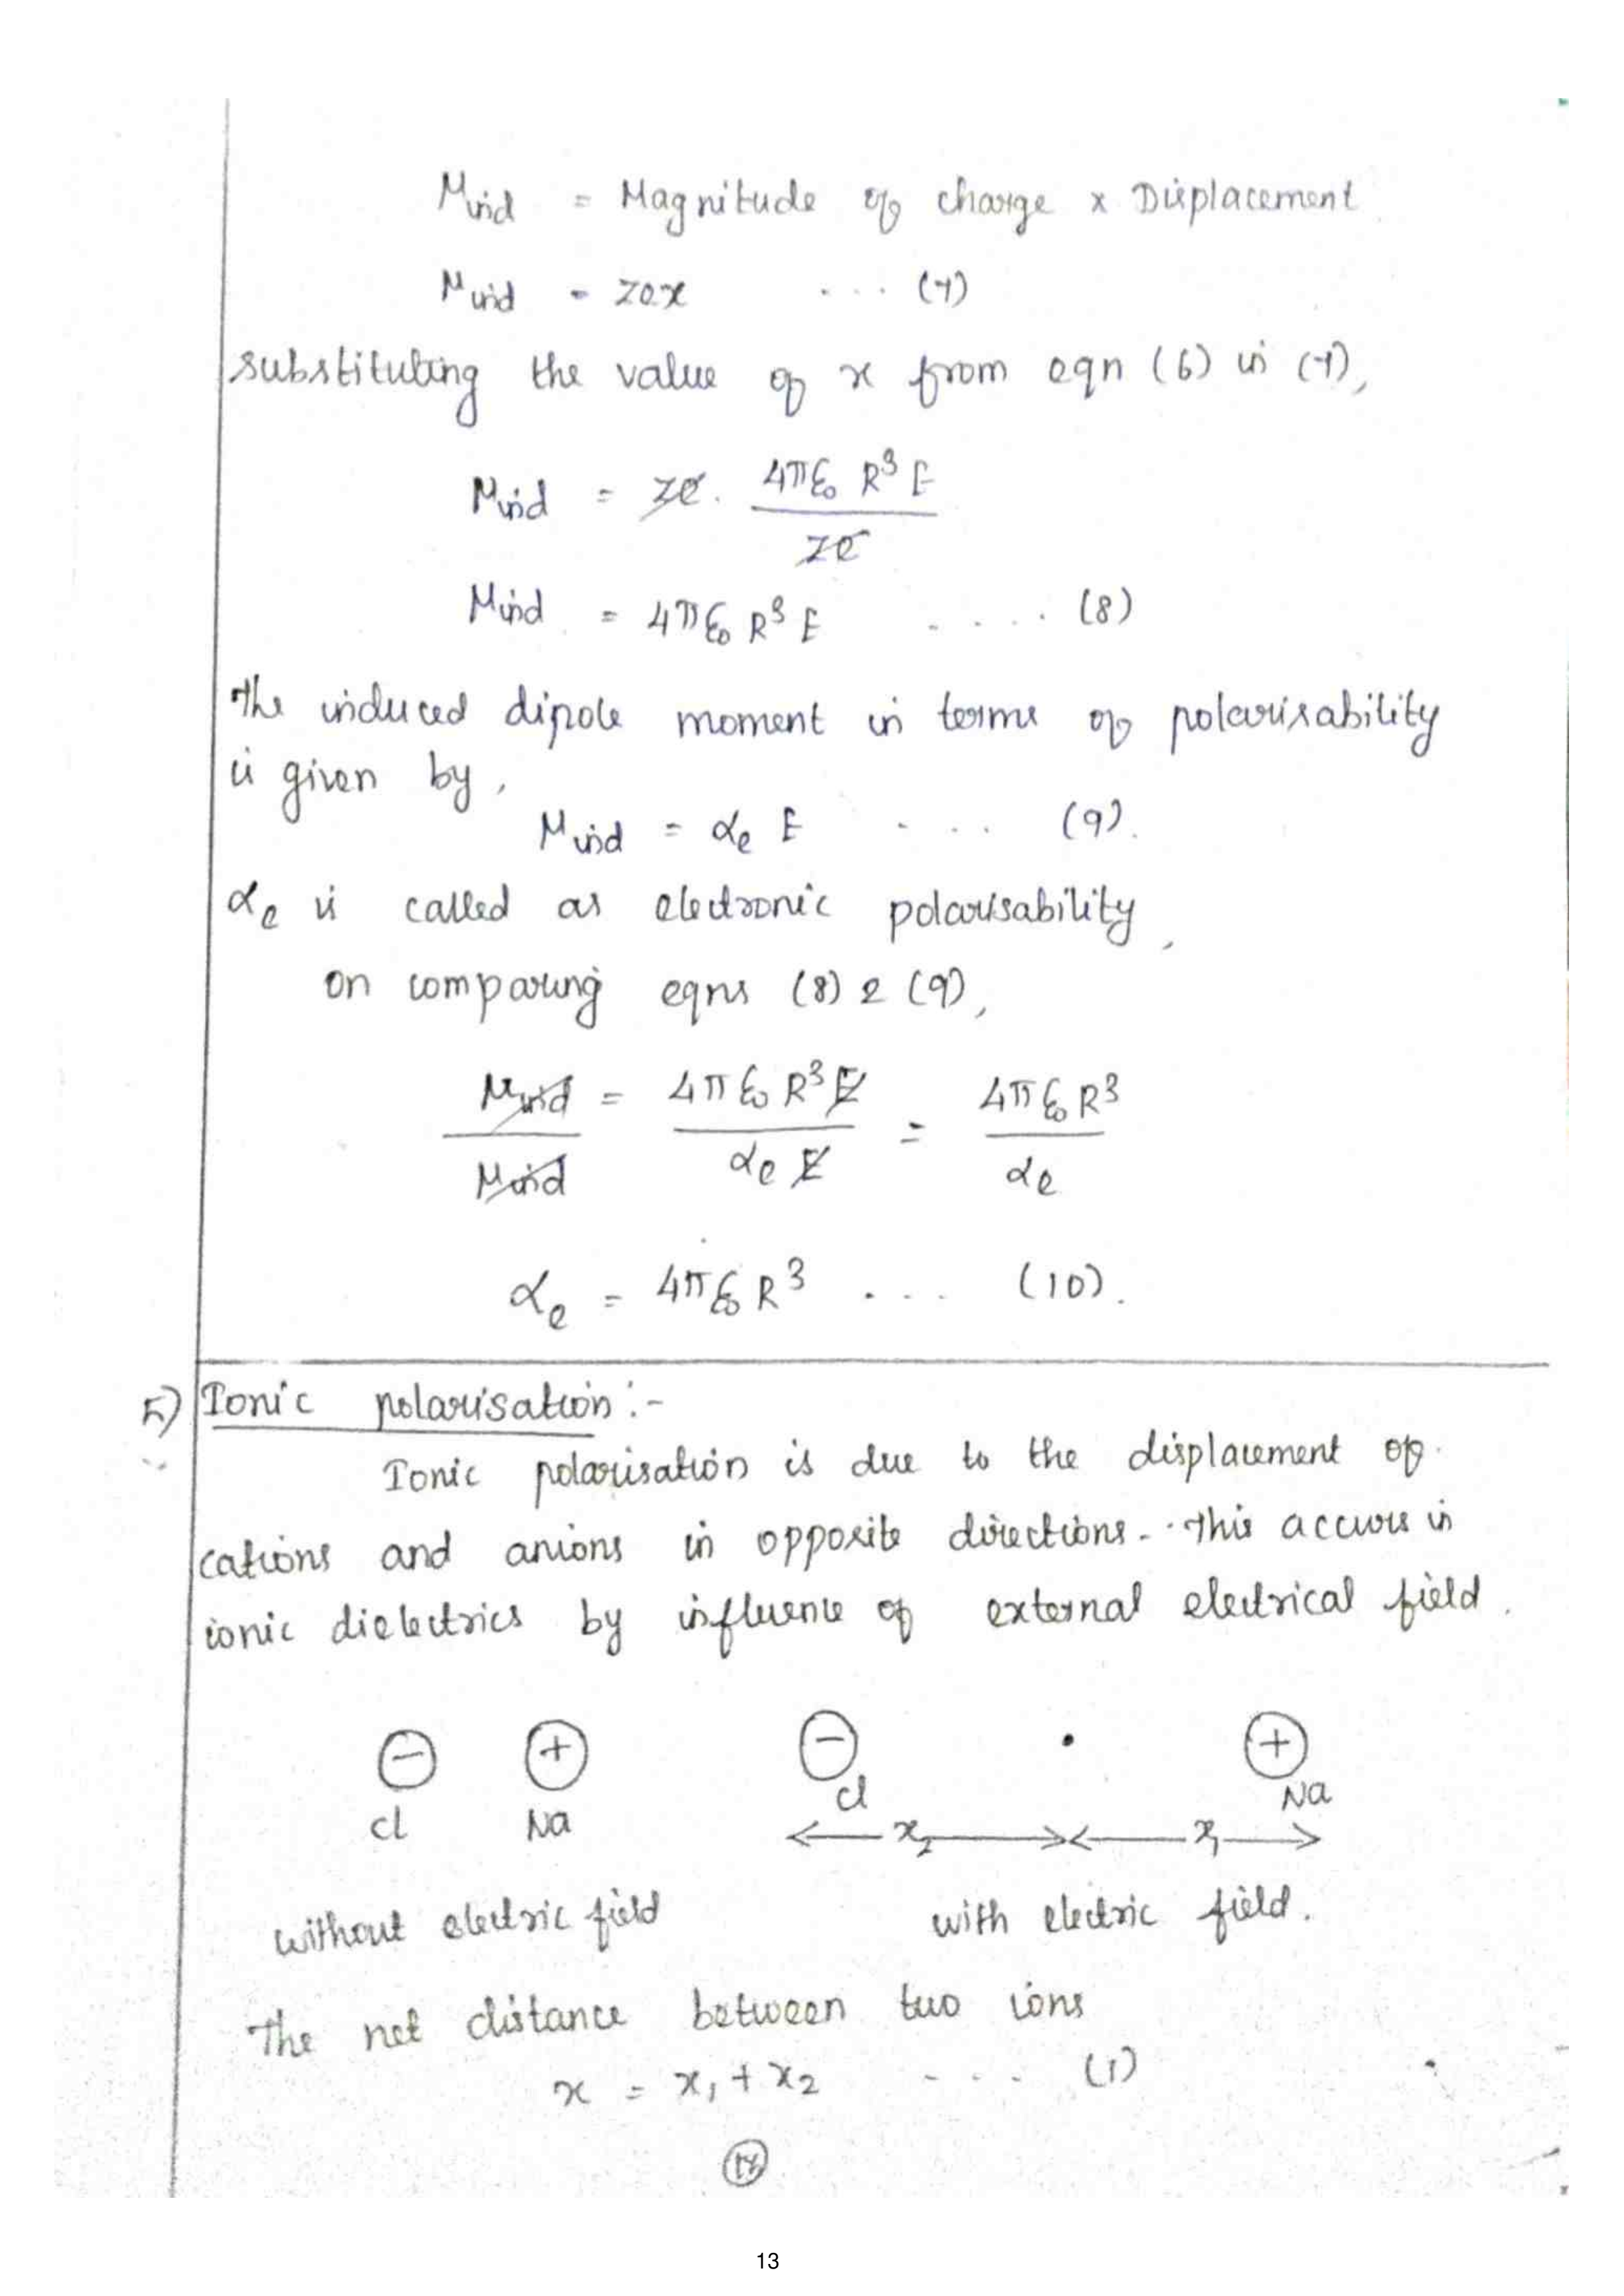 μind = Magnitude of charge x Displacement
μind = zex ... (7)
substituting the value of x from eqn (6) in (7),
μind = ze. 4πε₀ R³ E / ze
μind = 4πε₀ R³ E ..... (8)
The induced dipole moment in terms of polarisability
is given by,
μind = αe E .... (9).
αe is called as electronic polarisability,
on comparing eqns (8) & (9),
μind / μind = 4πε₀ R³ E / αe E = 4πε₀ R³ / αe
αe = 4πε₀ R³ .... (10).
5) Ionic polarisation :-
Ionic polarisation is due to the displacement of
cations and anions in opposite directions. This accurs in
ionic dielectrics by influence of external electrical field.
Cl Na Cl Na
x₂ x₁
without electric field with electric field.
The net distance between two ions
x = x₁ + x₂ .... (1)
13